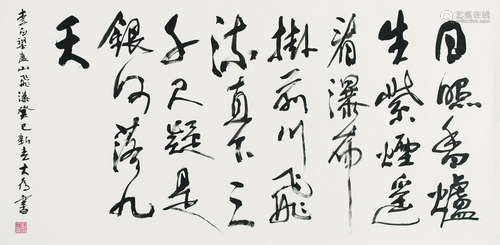 日照香爐
生紫煙遥
看瀑布
掛前川飛
流直下三
千尺疑是
銀河落九
天
李白望庐山飛瀑癸巳新春大为書